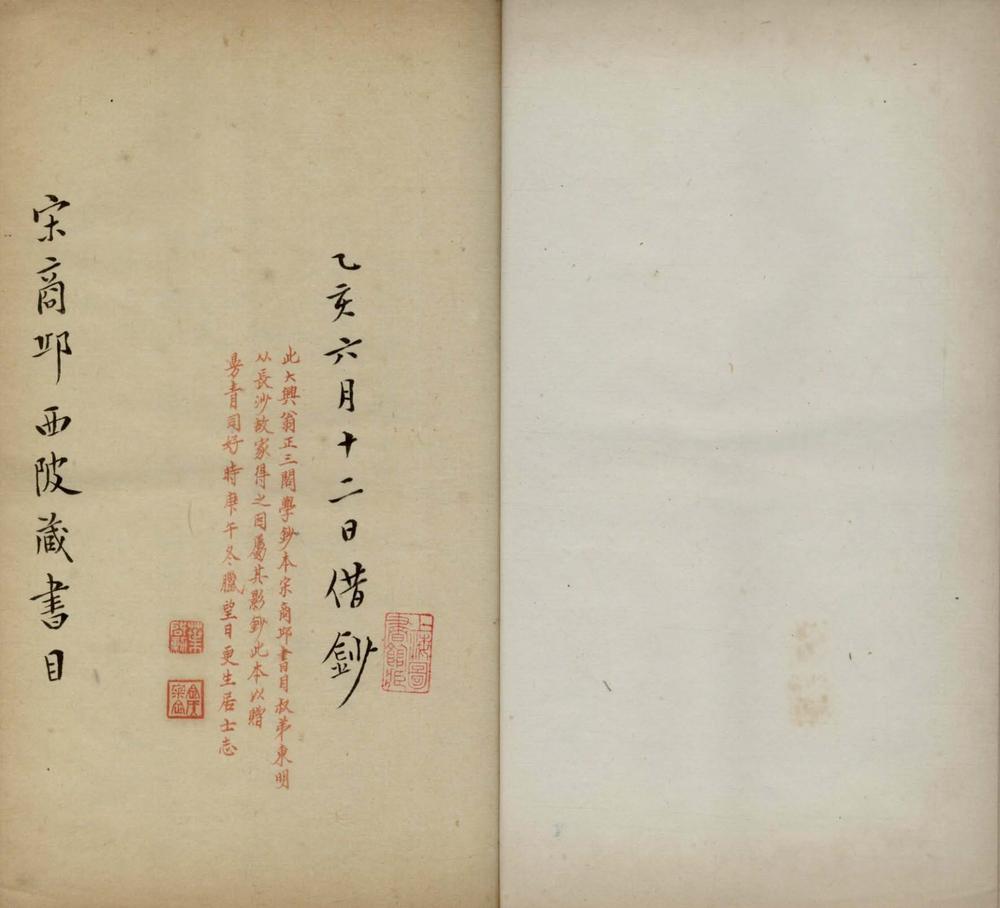 乙亥六月十二日借鈔
此大興翁正三閣學鈔本宋商邱書目叔弟東明
从長沙故家得之因屬其影鈔此本以贈
同好時庚午冬臘望日更生居士志
宋商邱西陂藏書目
上海圖書館所
葉